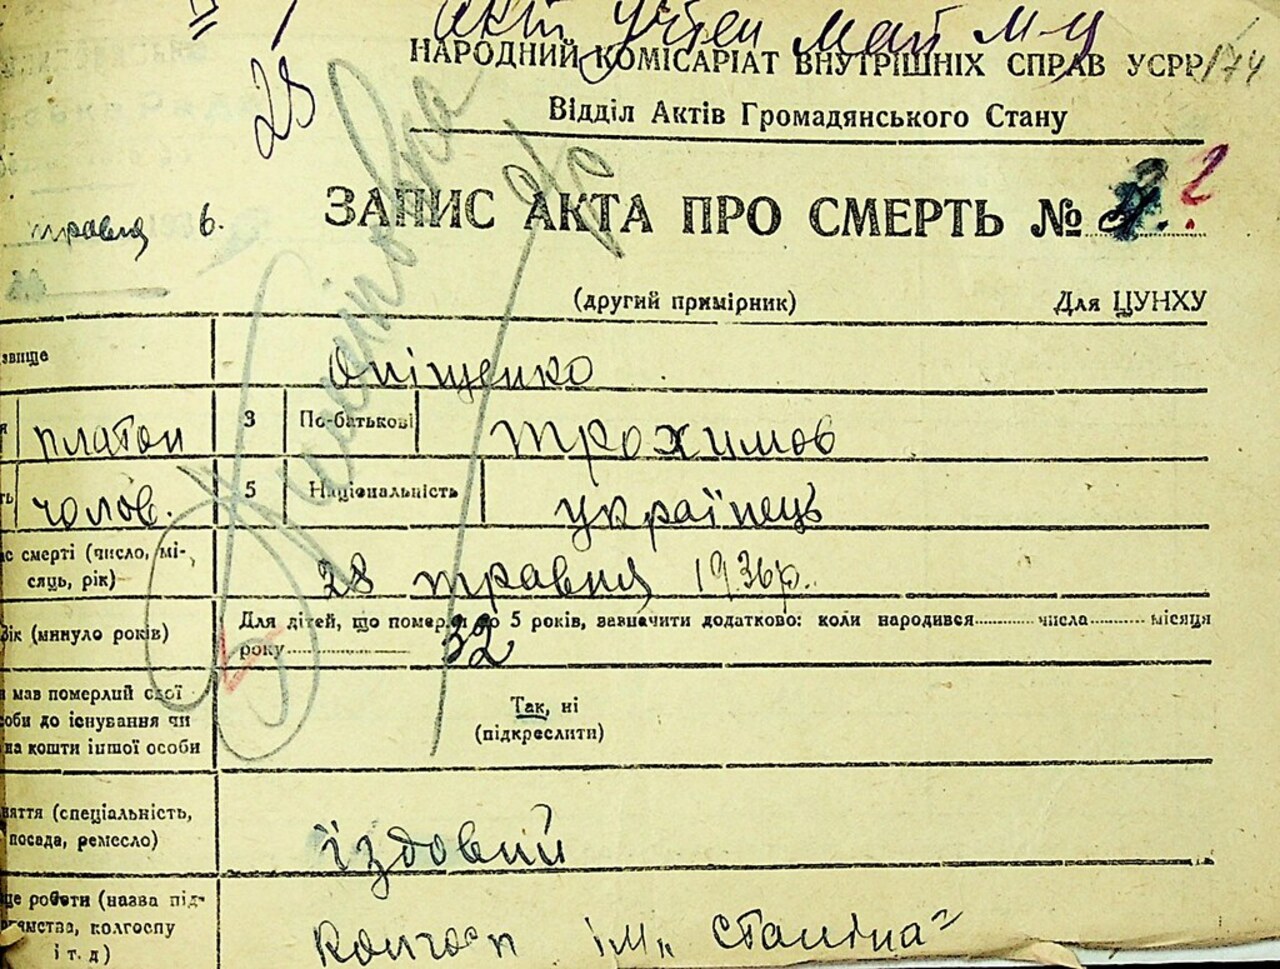 акт учтен май м-ц
НАРОДНИЙ КОМІСАРІАТ ВНУТРІШНІХ СПРАВ УСРР 174
28
Відділ Актів Громадянського Стану
ЗАПИС АКТА ПРО СМЕРТЬ № 2
травня 6.
(другий примірник) Для ЦУНХУ
звище Опіщенко
я платон 3 По-батькові трохимов
ть чолов. 5 Національність українець
ас смерті (число, мі-
сяць, рік) 28 травня 1936р.
Вік (минуло років) Для дітей, що померли до 5 років, зазначити додатково: коли народився числа місяця
року 32
и мав померлий свої
соби до існування чи
на кошти іншої особи
Так, ні
(підкреслити)
няття (спеціальність,
посада, ремесло) їздовий
це роботи (назва під-
ємства, колгоспу
і т. д) Колгосп ім. Сталіна